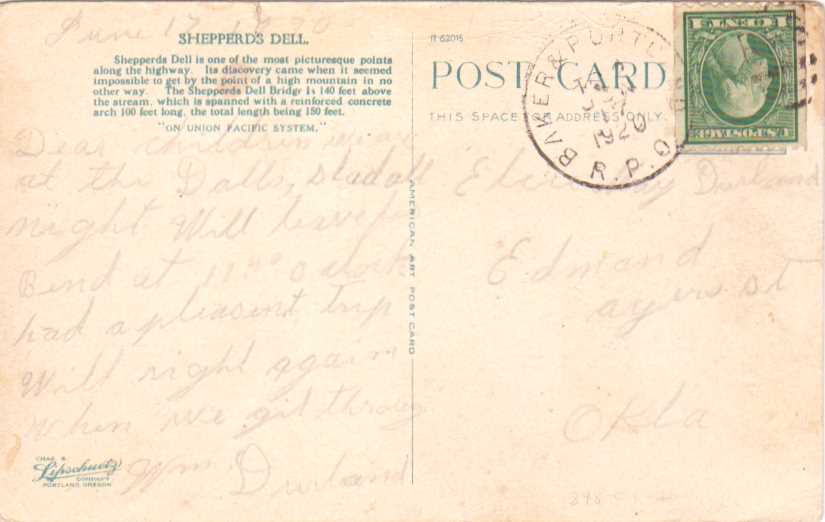 June 17 1920
SHEPPERD'S DELL.
Shepperds Dell is one of the most picturesque points
along the highway. Its discovery came when it seemed
impossible to get by the point of a high mountain in no
other way. The Shepperds Dell Bridge is 140 feet above
the stream, which is spanned with a reinforced concrete
arch 100 feet long, the total length being 150 feet.
"ON UNION PACIFIC SYSTEM."
Dear children we are
at the Dalls, stad all
night Will leave for
Bend at 11 40 o clock
had a pleasant trip
Will right again
when we git throug
Wm Durland
CHAS. S.
Lipschuetz
COMPANY
PORTLAND, OREGON
AMERICAN ART POST CARD
R-62015
POST CARD
THIS SPACE FOR ADDRESS ONLY.
BAKER & PORTLAND
JUN
1920
R.P.O.
1 CENT 1
U.S. POSTAGE
Durland
Edmand
ayers st
Okla